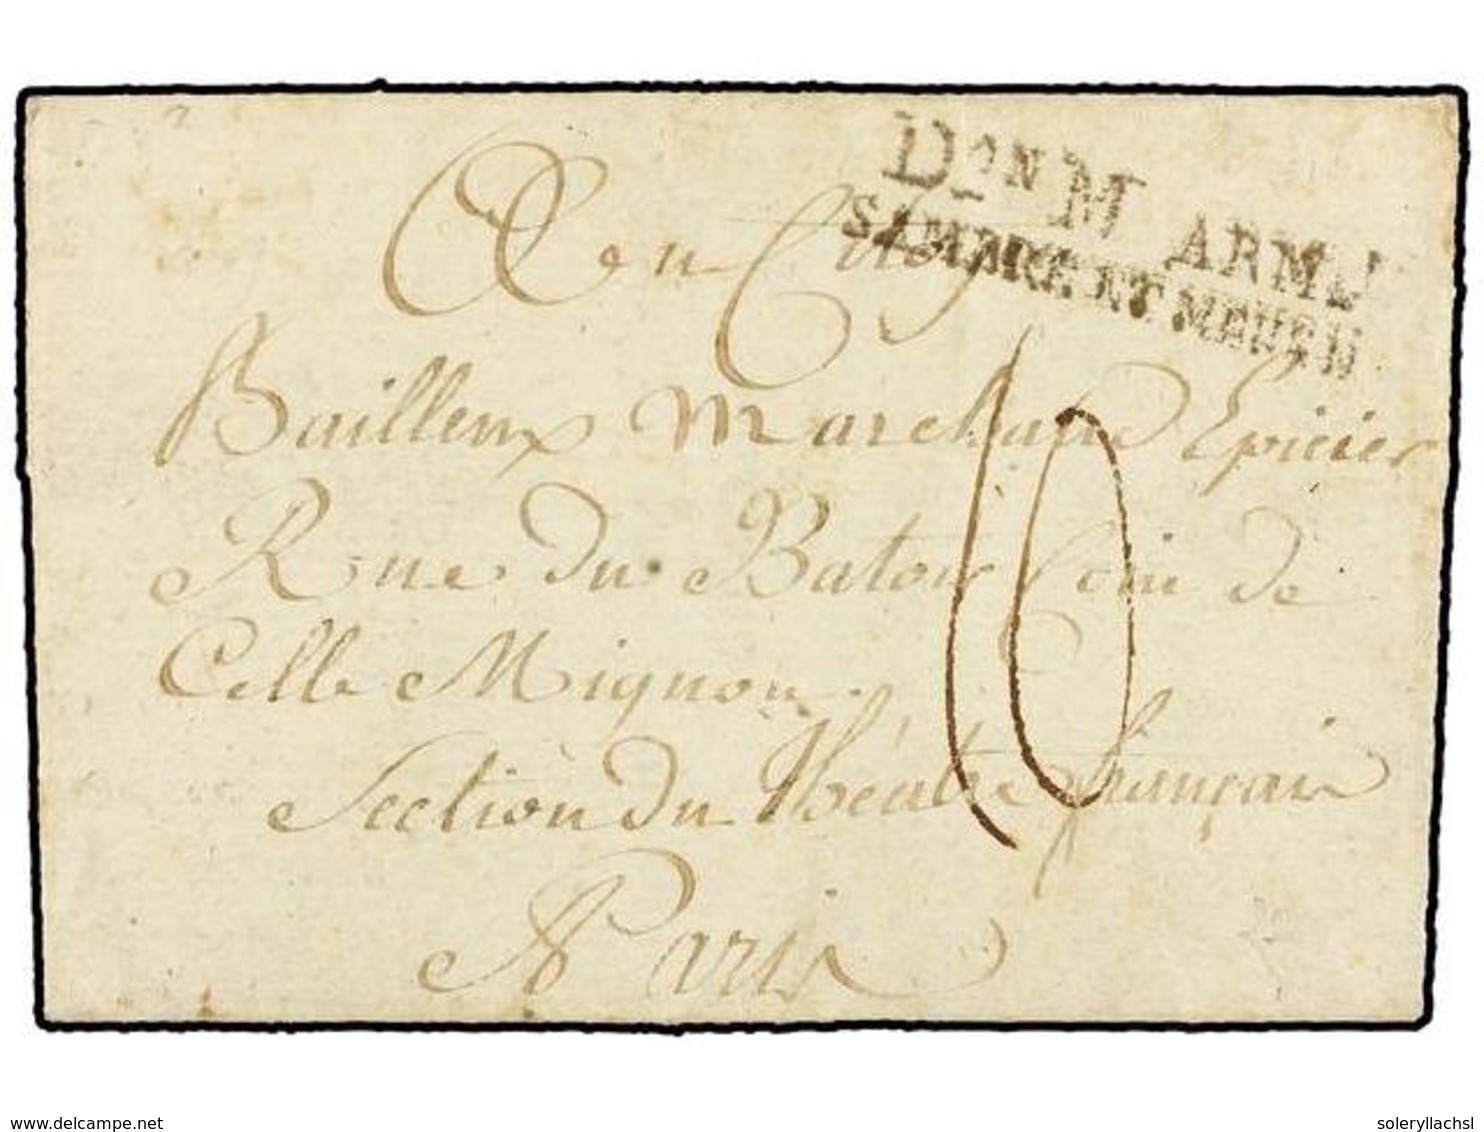 Don M ARMÉE
SAMBRE ET MEUSE
Au Citoyen
Bailleux Marchand Epicier
10
Rue du Batoir Coin de
Celle Mignon
Section du théatre français
A Paris
delcampe.net
soleryllachsl